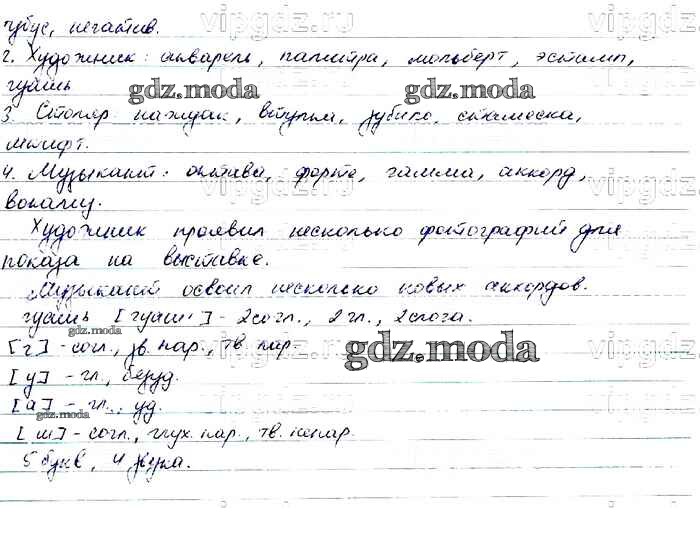 тубус, негатив.
2. Художник: акварель, палитра, мольберт, эстамп,
гуашь
3. Столяр: наждак, втулка, зубило, стамеска,
штифт.
4. Музыкант: октава, форте, гамма, аккорд,
вокализ.
Художник проявил несколько фотографий для
показа на выставке.
Музыкант освоил несколько новых аккордов.
гуашь [гуаш] - 2 согл., 2 гл., 2 слога.
[г] - согл., зв. пар., тв. пар.
[у] - гл., безуд.
[а] - гл., уд.
[ш] - согл., глух. пар., тв. непар.
5 букв, 4 звука.
gdz.moda
gdz.moda
gdz.moda
gdz.moda
gdz.moda
gdz.moda
vipgdz
vipgdz
vipgdz
vipgdz
vipgdz